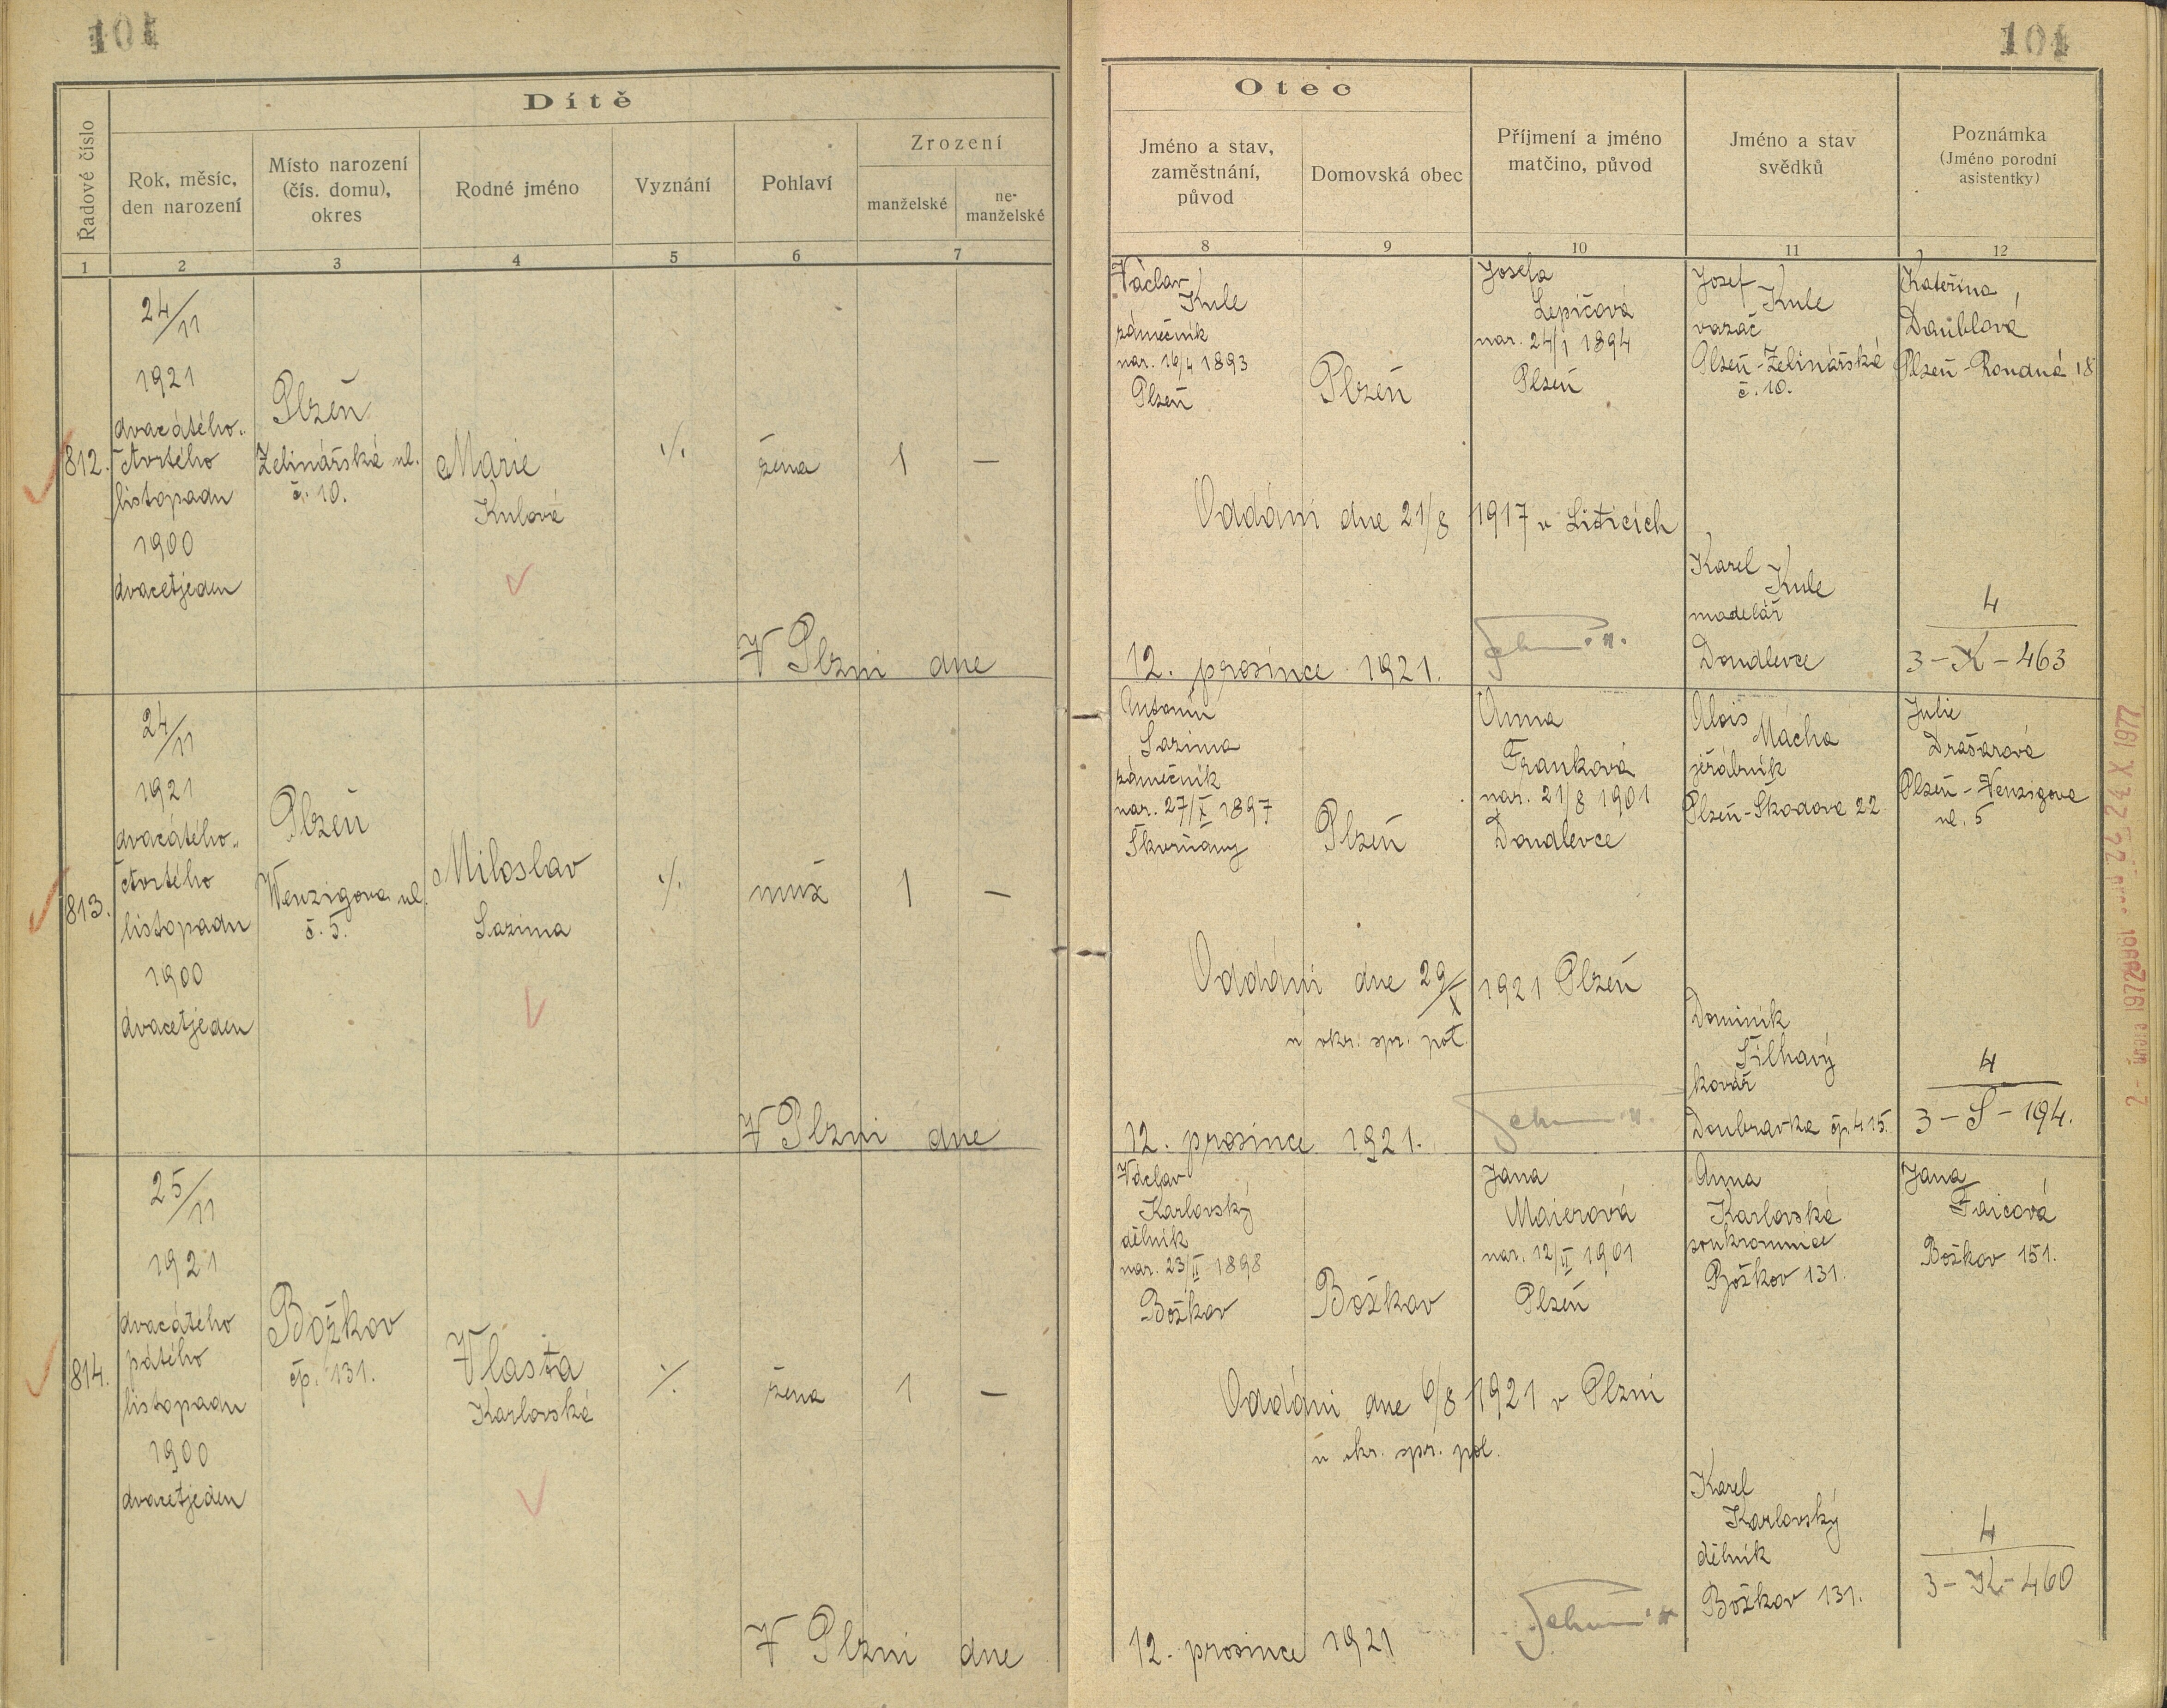 101
101
Dítě
Otec
Řadové číslo
Rok, měsíc,
den narození
Místo narození
(čís. domu),
okres
Rodné jméno
Vyznání
Pohlaví
Zrození
manželské
ne-
manželské
Jméno a stav,
zaměstnání,
původ
Domovská obec
Příjmení a jméno
matčino, původ
Jméno a stav
svědků
Poznámka
(Jméno porodní
asistentky)
1
2
3
4
5
6
7
8
9
10
11
12
812.
24/11
1921
dvacátého-
čtvrtého
listopadu
1900
dvacetjeden
Plzeň
Zelinářská ul.
č. 10.
Marie
Kulová
./.
žena
1
—
Václav
Kule
zámečník
nar. 16/4 1893
Plzeň
Plzeň
Josefa
Lepičová
nar. 24/1 1894
Plzeň
Josef
Kule
vazač
Plzeň-Zelinářská
č. 10.
Kateřina
Daüblová
Plzeň-Roudná 18
Oddáni dne 21/8 1917 v Liticích
Karel
Kule
modelář
Doudlevce
4
3-K-463
V Plzni dne
12. prosince 1921.
813.
24/11
1921
dvacátého-
čtvrtého
listopadu
1900
dvacetjeden
Plzeň
Wenzigova ul.
č. 5.
Miloslav
Sazima
./.
muž
1
—
Antonín
Sazima
zámečník
nar. 27/X 1897
Skvrňany
Plzeň
Anna
Franková
nar. 21/8 1901
Doudlevce
Alois
Mácha
jeřábník
Plzeň-Škodova 22
Julie
Drásarová
Plzeň-Wenzigova
ul. 5
Oddáni dne 29/X 1921 Plzeň
u okr. spr. pol.
Dominik
Šilhavý
kovář
Doubravka čp. 415.
4
3-S-194.
V Plzni dne
12. prosince 1921.
814.
25/11
1921
dvacátého
pátého
listopadu
1900
dvacetjeden
Božkov
čp. 131.
Vlasta
Karlovská
./.
žena
1
—
Václav
Karlovský
dělník
nar. 23/II 1898
Božkov
Božkov
Jana
Maierová
nar. 12/II 1901
Plzeň
Anna
Karlovská
soukromnice
Božkov 131.
Jana
Faicová
Božkov 151.
Oddáni dne 6/8 1921 v Plzni
u okr. spr. pol.
Karel
Karlovský
dělník
Božkov 131.
4
3-K-460
V Plzni dne
12. prosince 1921